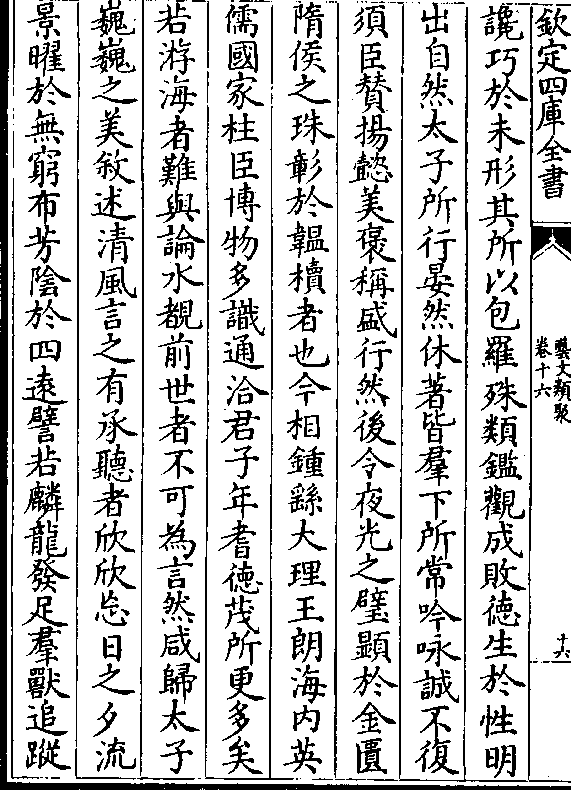 欽定四庫全書
藝文類聚
卷十六
十六
讒巧於未形其所以包羅殊類鑑觀成敗德生於性明
出自然太子所行晏然休著皆羣下所常吟咏誠不復
須臣贊揚懿美褒稱盛行然後令夜光之璧顯於金匱
隋侯之珠彰於韞櫝者也今相鍾繇大理王朗海内英
儒國家柱臣博物多識通洽君子年耆徳茂所更多矣
若游海者難與論水覩前世者不可為言然咸歸太子
巍巍之美敘述清風言之有承聽者欣欣忘日之夕流
景曜於無窮布芳陰於四逺譬若麟龍發足羣獸追蹤